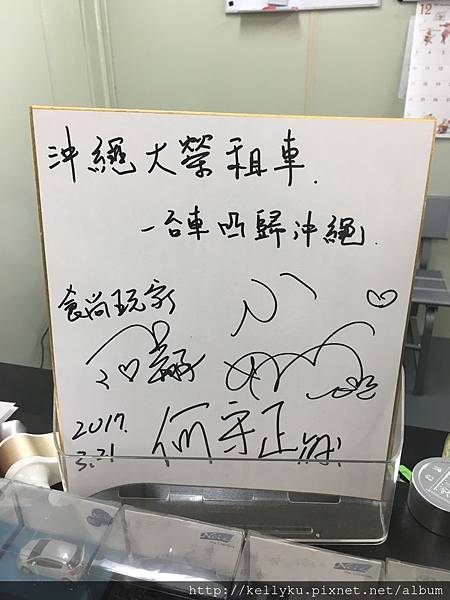 12
沖繩大榮租車.
一台車凸歸沖繩.
食尚玩家
2017.
3.21
何守正
http://kellyku.pixnet.net/album